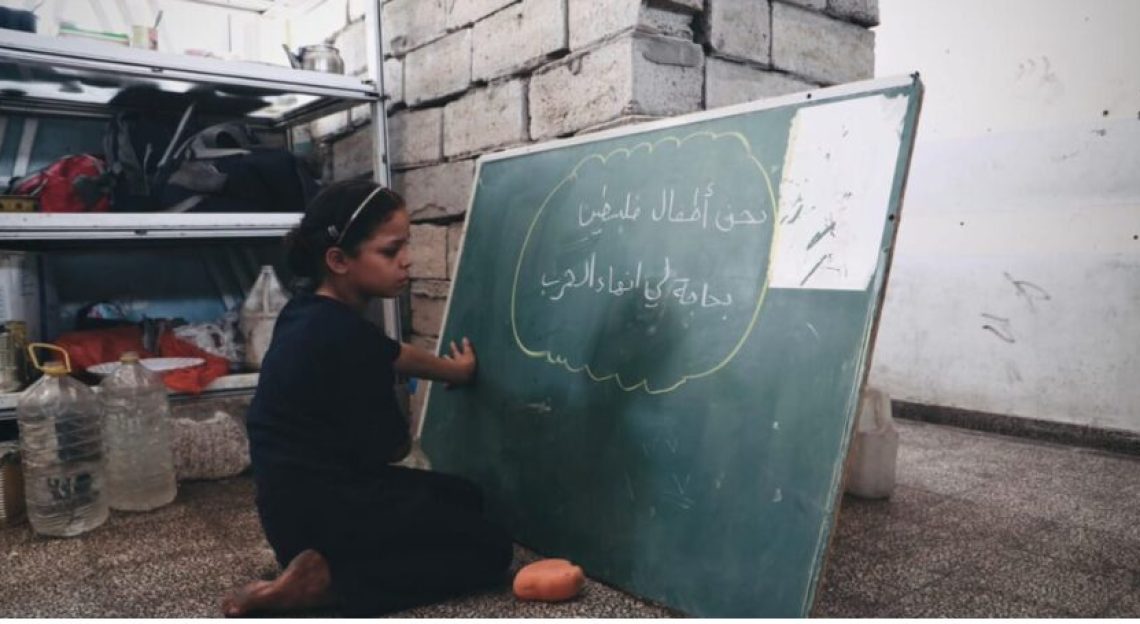 نحن أطفال فلسطين
بحاجة لي انهاء الحرب